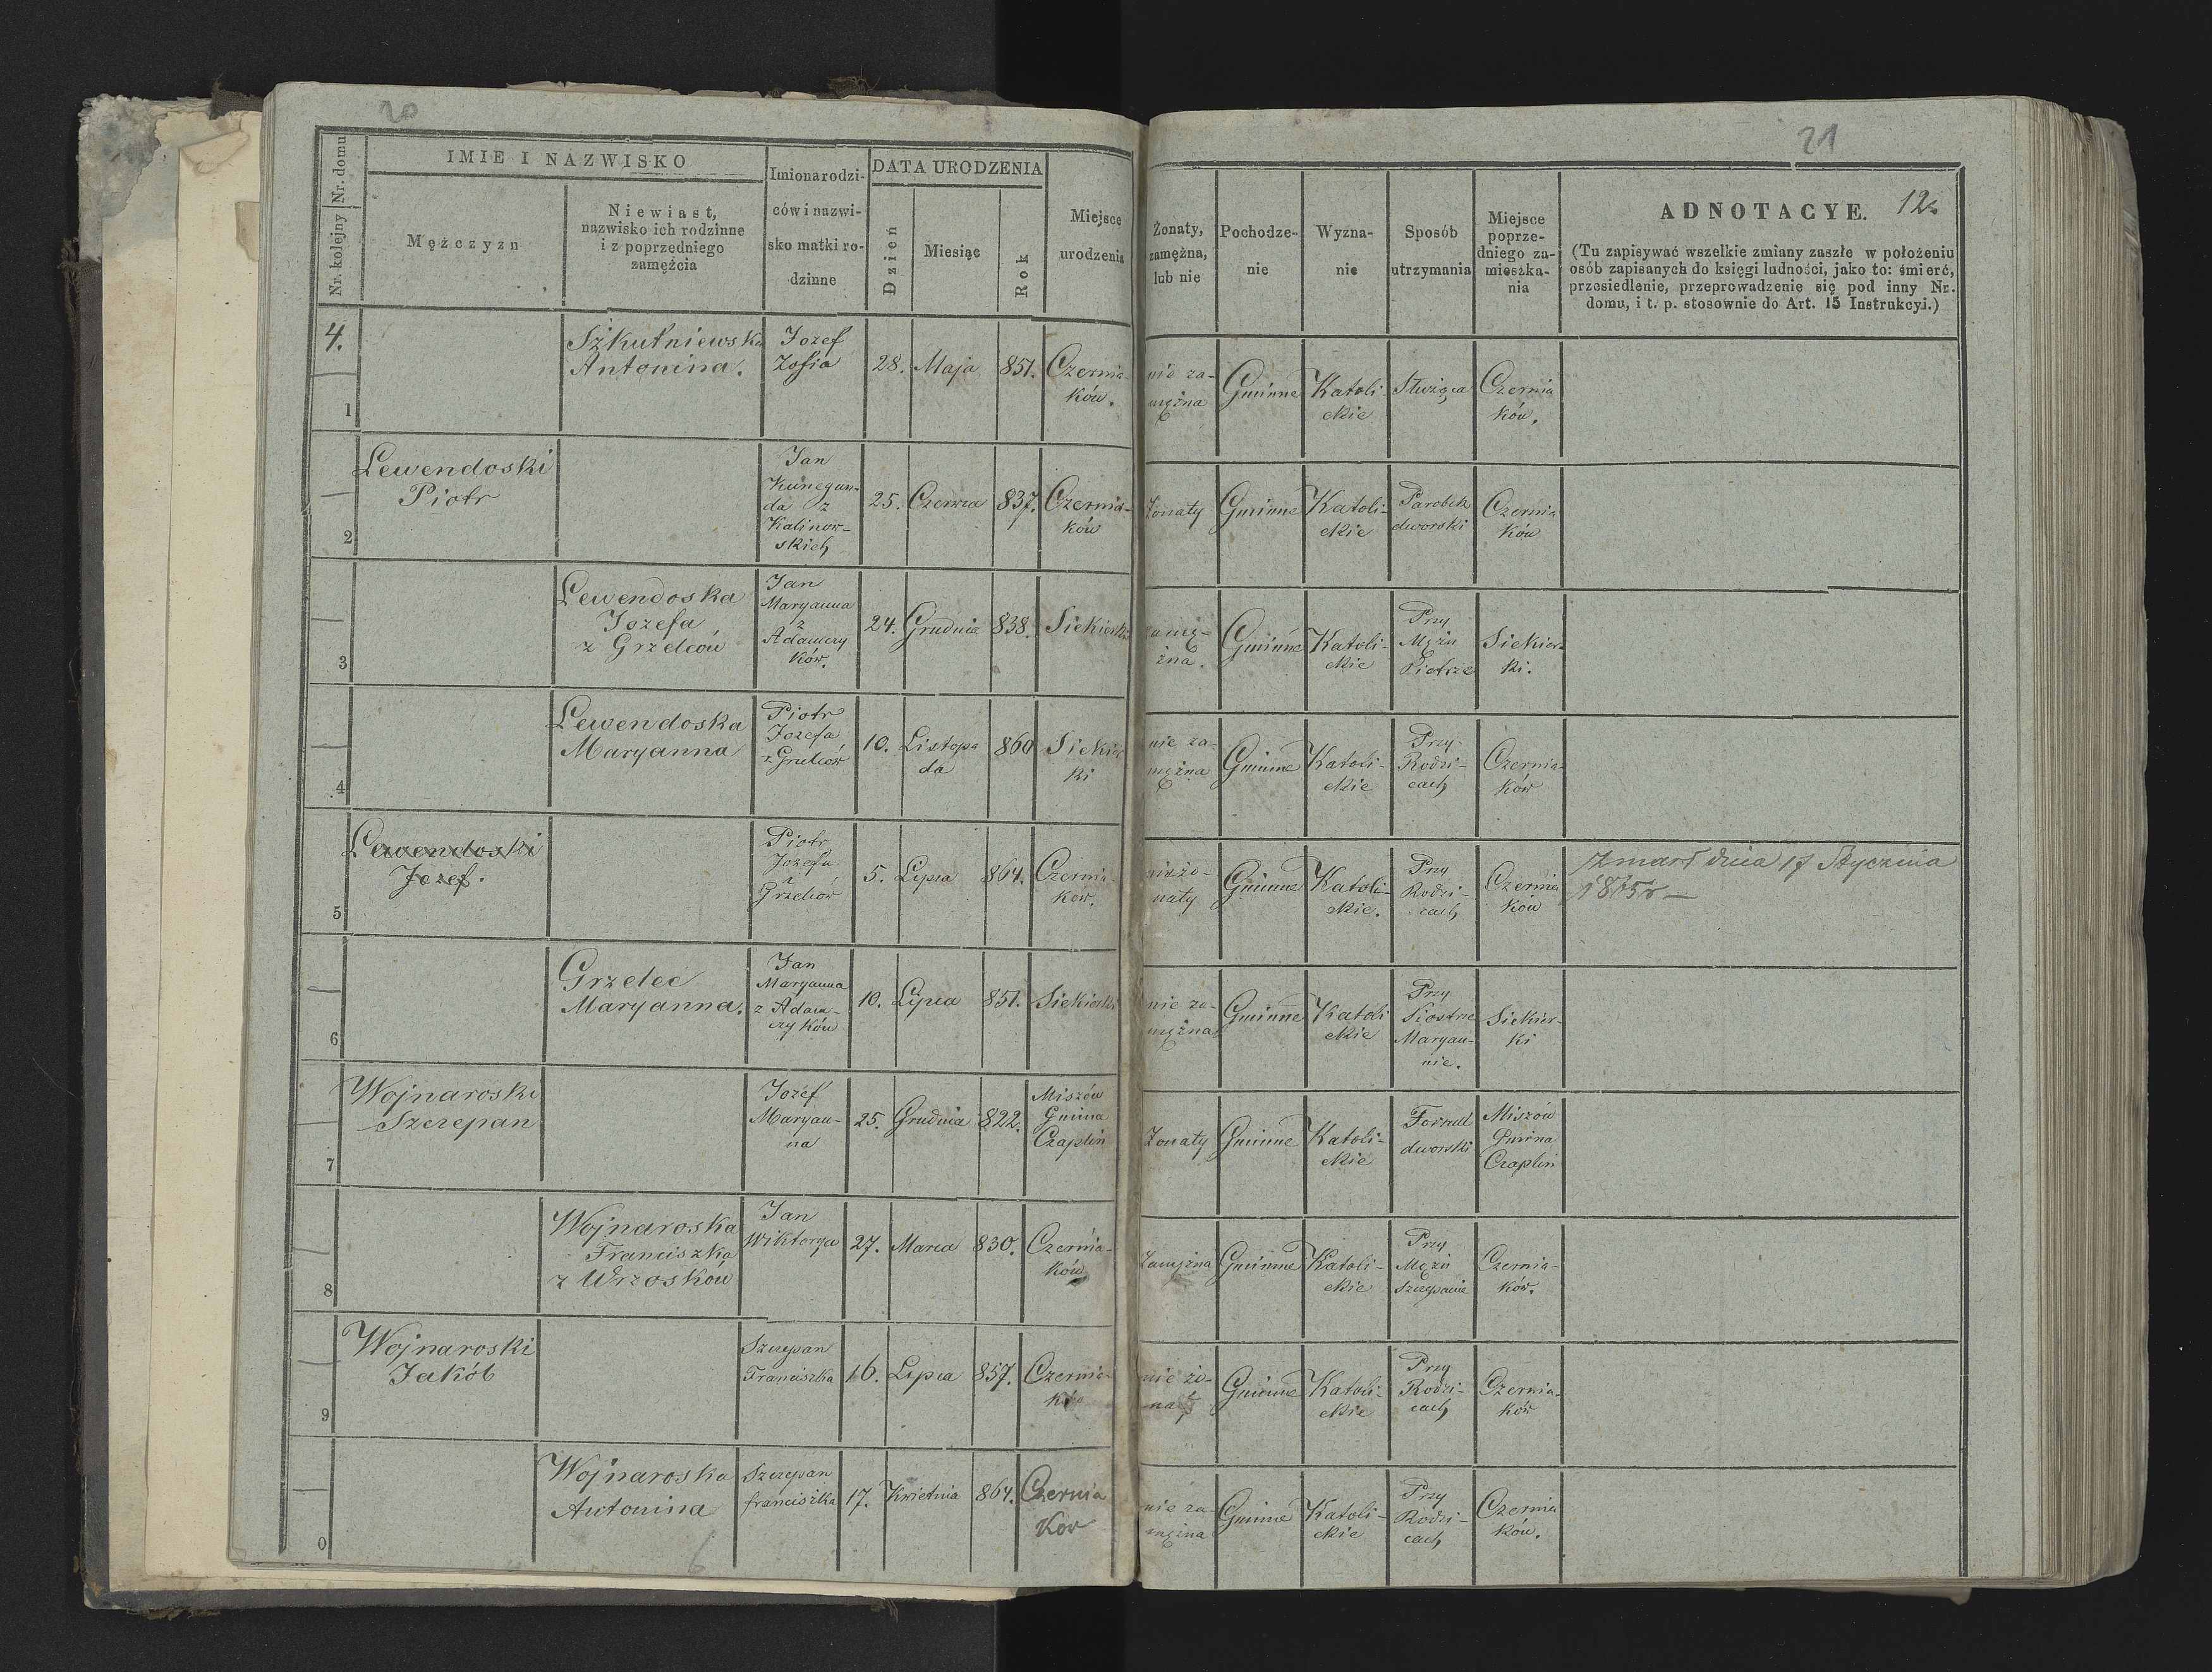 20
21
12.
Nr. kolejny Nr. domu
IMIE I NAZWISKO
Mężczyzn
Niewiast,
nazwisko ich rodzinne
i z poprzedniego
zamężcia
Imiona rodzi-
ców i nazwi-
sko matki ro-
dzinne
DATA URODZENIA
Dzień
Miesiąc
Rok
Miejsce
urodzenia
Żonaty,
zamężna,
lub nie
Pochodze-
nie
Wyzna-
nie
Sposób
utrzymania
Miejsce
poprze-
dniego za-
mieszka-
nia
ADNOTACYE.
(Tu zapisywać wszelkie zmiany zaszłe w położeniu
osób zapisanych do księgi ludności, jako to: śmierć,
przesiedlenie, przeprowadzenie się pod inny Nr.
domu, i t. p. stosownie do Art. 15 Instrukcyi.)
4.
1
Szkutniewska
Antonina.
Jozef
Zofia
28.
Maja
851.
Czernia-
ków.
nie za-
mężna
Gminne
Katoli-
ckie
Służąca
Czernia
ków.
2
Lewendoski
Piotr
Jan
Kunegun-
da z
Kalinow-
skich
25.
Czerwca
837.
Czernia-
ków
Żonaty
Gminne
Katoli-
ckie
Parobek
dworski
Czernia
ków
3
Lewendoska
Jozefa
z Grzelców
Jan
Maryanna
z
Adamczy
ków.
24.
Grudnia
838.
Siekierki
zamę-
żna.
Gminne
Katoli-
ckie
Przy
Mężu
Piotrze
Siekier-
ki.
4
Lewendoska
Maryanna
Piotr
Jozefa
z Grzelców
10.
Listopa
da
860
Siekier
ki
nie za-
mężna
Gminne
Katoli-
ckie
Przy
Rodzi-
cach
Czernia-
ków
5
Lewendoski
Jozef.
Piotr
Jozefa
z
Grzelców
5.
Lipca
864.
Czernia-
ków.
nieżo-
naty
Gminne
Katoli-
ckie.
Przy
Rodzi-
cach
Czernia
ków
Zmarł dnia 17 Stycznia
1865r —
6
Grzelec
Maryanna.
Jan
Maryanna
z Adam-
czyków
10.
Lipca
851.
Siekierki
nie za-
mężna
Gminne
Katoli
ckie
Przy
Siostrze
Maryan-
nie.
Siekier-
ki
7
Wojnaroski
Szczepan
Jozéf
Maryan-
na
25.
Grudnia
822.
Miszów
Gmina
Czaplin
Żonaty
Gminne
Katoli-
ckie
Fornal
dworski
Miszów
Gmina
Czaplin
8
Wojnaroska
Franciszka
z Wrzosków
Jan
Wiktorya
27.
Marca
830.
Czernia-
ków
Zamężna
Gminne
Katoli-
ckie
Przy
Mężu
Szczepanie
Czernia-
ków.
9
Wojnaroski
Jakób
Szczepan
Franciszka
16.
Lipca
857.
Czernia-
ków
nie żo-
naty
Gminne
Katoli-
ckie
Przy
Rodzi-
cach
Czernia-
ków
0
Wojnaroska
Antonina
Szczepan
franciszka
17.
Kwietnia
864.
Czernia
kow
nie za-
mężna
Gminne
Katoli-
ckie
Przy
Rodzi-
cach
Czernia
ków.
6